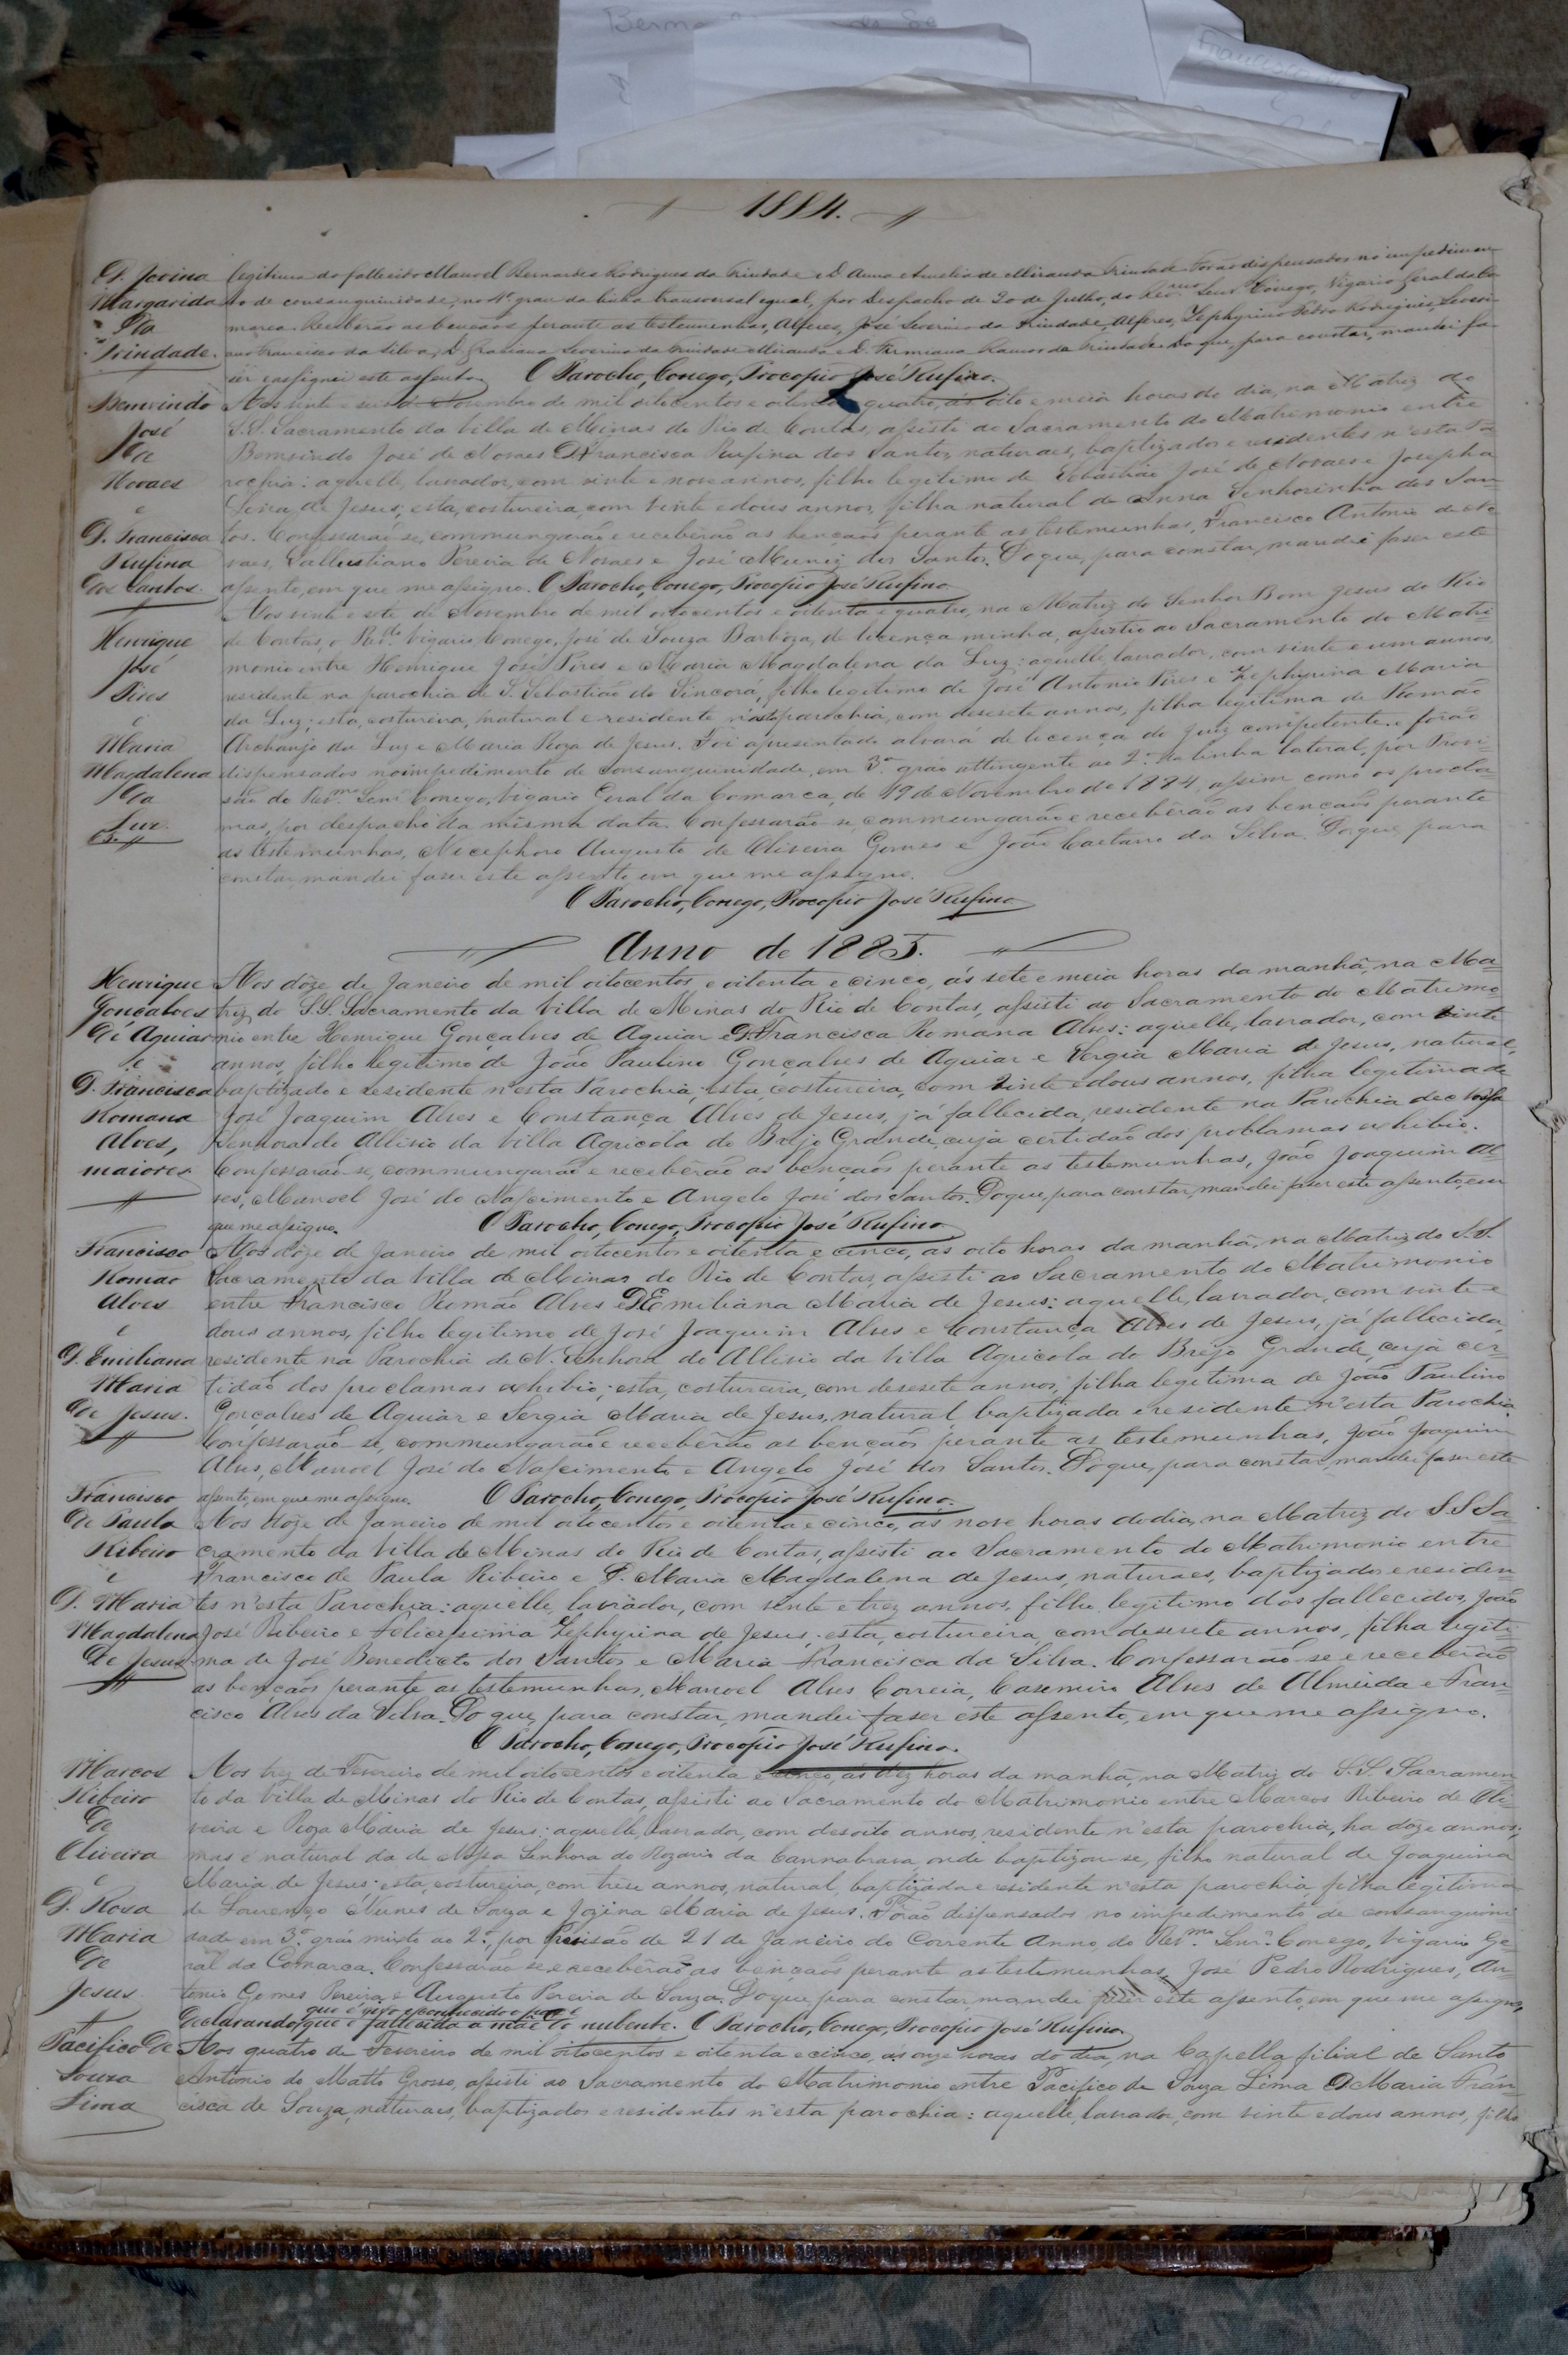 1884.
D. Jovina
Margarida
da
Trindade.
legitima do fallecido Manoel Bernardes Rodrigues da Trindade e D. Anna Amelia de Miranda Trindade. Forão dispensados no impedimen-
to de consanguinidade, no 4º grau da linha transversal egual, por Despacho de 20 de Julho, do Revmo Senr. Conego, Vigario Geral da Co-
marca. Receberão as bençãos perante as testemunhas, Alferes, José Severino da Trindade, Alferes, Zephyrino Pedro Rodrigues, Severi-
no Francisco da Silva, D. Graciana Severina da Trindade Miranda e D. Firmiana Ramos da Trindade. Do que, para constar, mandei fa-
ser e assignei este assento. O Parocho, Conego, Procopio José Rufino.
Bemvindo
José
de
Novaes
e
D. Francisca
Rufina
dos Santos.
Aos vinte e seis de Novembro de mil oitocentos e oitenta e quatro, ás oito e meia horas do dia, na Matriz do
S.S. Sacramento da Villa de Minas do Rio de Contas, assisti ao Sacramento do Matrimonio entre
Bemvindo José de Novaes e D. Francisca Rufina dos Santos, naturaes, baptizados e residentes n'esta Pa-
rochia: aquelle, lavrador, com vinte e nove annos, filho legitimo de Sebastião José de Novaes e Josepha
de Jesus; esta, costureira, com vinte e dous annos, filha natural de Anna Senhorinha dos San-
tos. Confessarão-se, commungarão e receberão as bençaõs perante as testemunhas, Francisco Antonio de No-
vaes, Sallustiano Pereira de Novaes e José Muniz dos Santos. Do que, para constar, mandei faser este
assento, em que me assigno. O Parocho, Conego, Procopio José Rufino
Henrique
José
Pires
e
Maria
Magdalena
da
Luz.
Aos vinte e sete de Novembro de mil oitocentos e oitenta e quatro, na Matriz do Senhor Bom Jesus do Rio
de Contas, o Revdo Vigario Conego, José de Souza Barboza, de licença minha, assistio ao Sacramento do Matri-
monio entre Henrique José Pires e Maria Magdalena da Luz: aquelle, lavrador, com vinte e um annos,
residente na parochia de S. Sebastião do Sincorá, filho legitimo de José Antonio Pires e Zephyrina Maria
da Luz; esta, costureira, natural e residente n'esta parochia, com desesete annos, filha legitima de Romão
Archanjo da Luz e Maria Roza de Jesus. Foi apresentado alvará de licença do Juiz competente e forão
dispensados no impedimento de consanguinidade, em 3º gráo attingente ao 2º na linha lateral, por Provi-
são do Revmo Senr Conego, Vigario Geral da Comarca, de 19 de Novembro de 1884, assim como os procla-
mas, por despacho da mesma data. Confessarão-se, commungarão e receberão as bençaõs perante
as testemunhas, Nicephoro Augusto de Oliveira Gomes e João Caetano da Silva. Do que, para
constar, mandei faser este assento em que me assigno.
O Parocho, Conego, Procopio José Rufino
Anno de 1885.
Henrique
Gonçalves
de Aguiar
e
D. Francisca
Romana
Alves,
maiores
Aos dôze de Janeiro de mil oitocentos, e oitenta e cinco, ás sete e meia horas da manhã, na Ma-
triz do S.S. Sacramento da Villa de Minas do Rio de Contas, assisti ao Sacramento do Matrimo-
nio entre Henrique Gonçalves de Aguiar e D. Francisca Romana Alves: aquelle, lavrador, com vinte
annos, filho legitimo de João Paulino Gonçalves de Aguiar e Sergia Maria de Jesus, natural,
baptizado e residente n'esta Parochia; esta, costureira, com vinte e dous annos, filha legitima de
José Joaquim Alves e Constança Alves de Jesus, já fallecida, residente na Parochia de Nossa
Senhora do Allivio da Villa Agricola do Brejo Grande, cuja certidão dos problamas exhibio.
Confessarão-se, commungarão e receberão as bençaõs perante as testemunhas, João Joaquim Al-
ves, Manoel José do Nascimento e Angelo José dos Santos. Do que, para constar, mandei faser este assento, em
que me assigno. O Parocho, Conego, Procopio José Rufino
Francisco
Romão
Alves
e
D. Emiliana
Maria
de Jesus.
Aos dôze de Janeiro de mil oitocentos e oitenta e cinco, as oito horas da manhã, na Matriz do S.S.
Sacramento da Villa de Minas do Rio de Contas, assisti ao Sacramento do Matrimonio
entre Francisco Romão Alves e D. Emiliana Maria de Jesus: aquelle, lavrador, com vinte e
dous annos, filho legitimo de José Joaquim Alves e Constança Alves de Jesus, já fallecida,
residente na Parochia de N. Senhora do Allivio da Villa Agricola do Brejo Grande, cuja cer-
tidaõ dos proclamas exhibio; esta, costureira, com desesete annos, filha legitima de João Paulino
Gonçalves de Aguiar e Sergia Maria de Jesus, natural baptizada e residente n'esta Parochia.
Confessarão-se, commungarão e receberão as bençaõs perante as testemunhas, João Joaquim
Alves, Manoel José do Nascimento e Angelo José dos Santos. Do que, para constar, mandei faser este
assento, em que me assigno. O Parocho, Conego, Procopio José Rufino.
Francisco
de Paula
Ribeiro
e
D. Maria
Magdalena
de Jesus
Aos dôze de Janeiro de mil oitocentos e oitenta e cinco, as nove horas do dia, na Matriz do S.S Sa-
cramento da Villa de Minas do Rio de Contas, assisti ao Sacramento do Matrimonio entre
Francisco de Paula Ribeiro e D. Maria Magdalena de Jesus, naturaes, baptizados e residen-
tes n'esta Parochia: aquelle, lavrador, com vinte e trez annos, filho legitimo dos fallecidos, João
José Ribeiro e Felicissima Zephyrina de Jesus; esta, costureira, com desesete annos, filha legiti-
ma de José Benedicto dos Santos e Maria Francisca da Silva. Confessarão-se e receberão
as bençaõs perante as testemunhas, Manoel Alves Correia, Casemiro Alves de Almeida e Fran-
cisco Alves da Silva. Do que, para constar, mandei faser este assento, em que me assigno.
O Parocho, Conego, Procopio José Rufino.
Marcos
Ribeiro
de
Oliveira
e
D. Rosa
Maria
de
Jesus
Aos trez de Fevereiro de mil oitocentos e oitenta e cinco, ás dez horas da manhã, na Matriz do S.S. Sacramen-
to da Villa de Minas do Rio de Contas, assisti ao Sacramento do Matrimonio entre Marcos Ribeiro de Oli-
veira e Roza Maria de Jesus: aquelle, lavrador, com desoito annos, residente n'esta parochia, ha dôze annos;
mas é natural da de Nossa Senhora do Rozario da Cannabrava, onde baptizou-se, filho natural de Joaquina
Maria de Jesus; esta, costureira, com trese annos, natural, baptizada e residente n'esta parochia, filha legitima
de Lourenço Nunes de Souza e Jozina Maria de Jesus. Forão dispensados no impedimento de consanguini-
dade em 3º gráo mixto ao 2º, por Provisão de 21 de Janeiro do Corrente Anno, do Revmo Senr. Conego, Vigario Ge-
ral da Comarca. Confessarão-se, e receberão as bençaõs perante as testemunhas, José Pedro Rodrigues, An-
tonio Gomes Pereira e Augusto Pereira de Souza. Do que, para constar mandei faser este assento, em que me assigno,
que é vivo e conhecido o pae e
declarando, que é fallecida a mãe do nubente. O Parocho, Conego, Procopio José Rufino
Pacifico de
Souza
Lima
Aos quatro de Fevereiro de mil oitocentos e oitenta e cinco, ás onze horas do dia, na Capella filial de Santo
Antonio do Matto Grosso, assisti ao Sacramento do Matrimonio entre Pacifico de Souza Lima e D. Maria Fran-
cisca de Souza, naturaes, baptizados e residentes n'esta parochia: aquelle, lavrador, com vinte e dous annos, filho